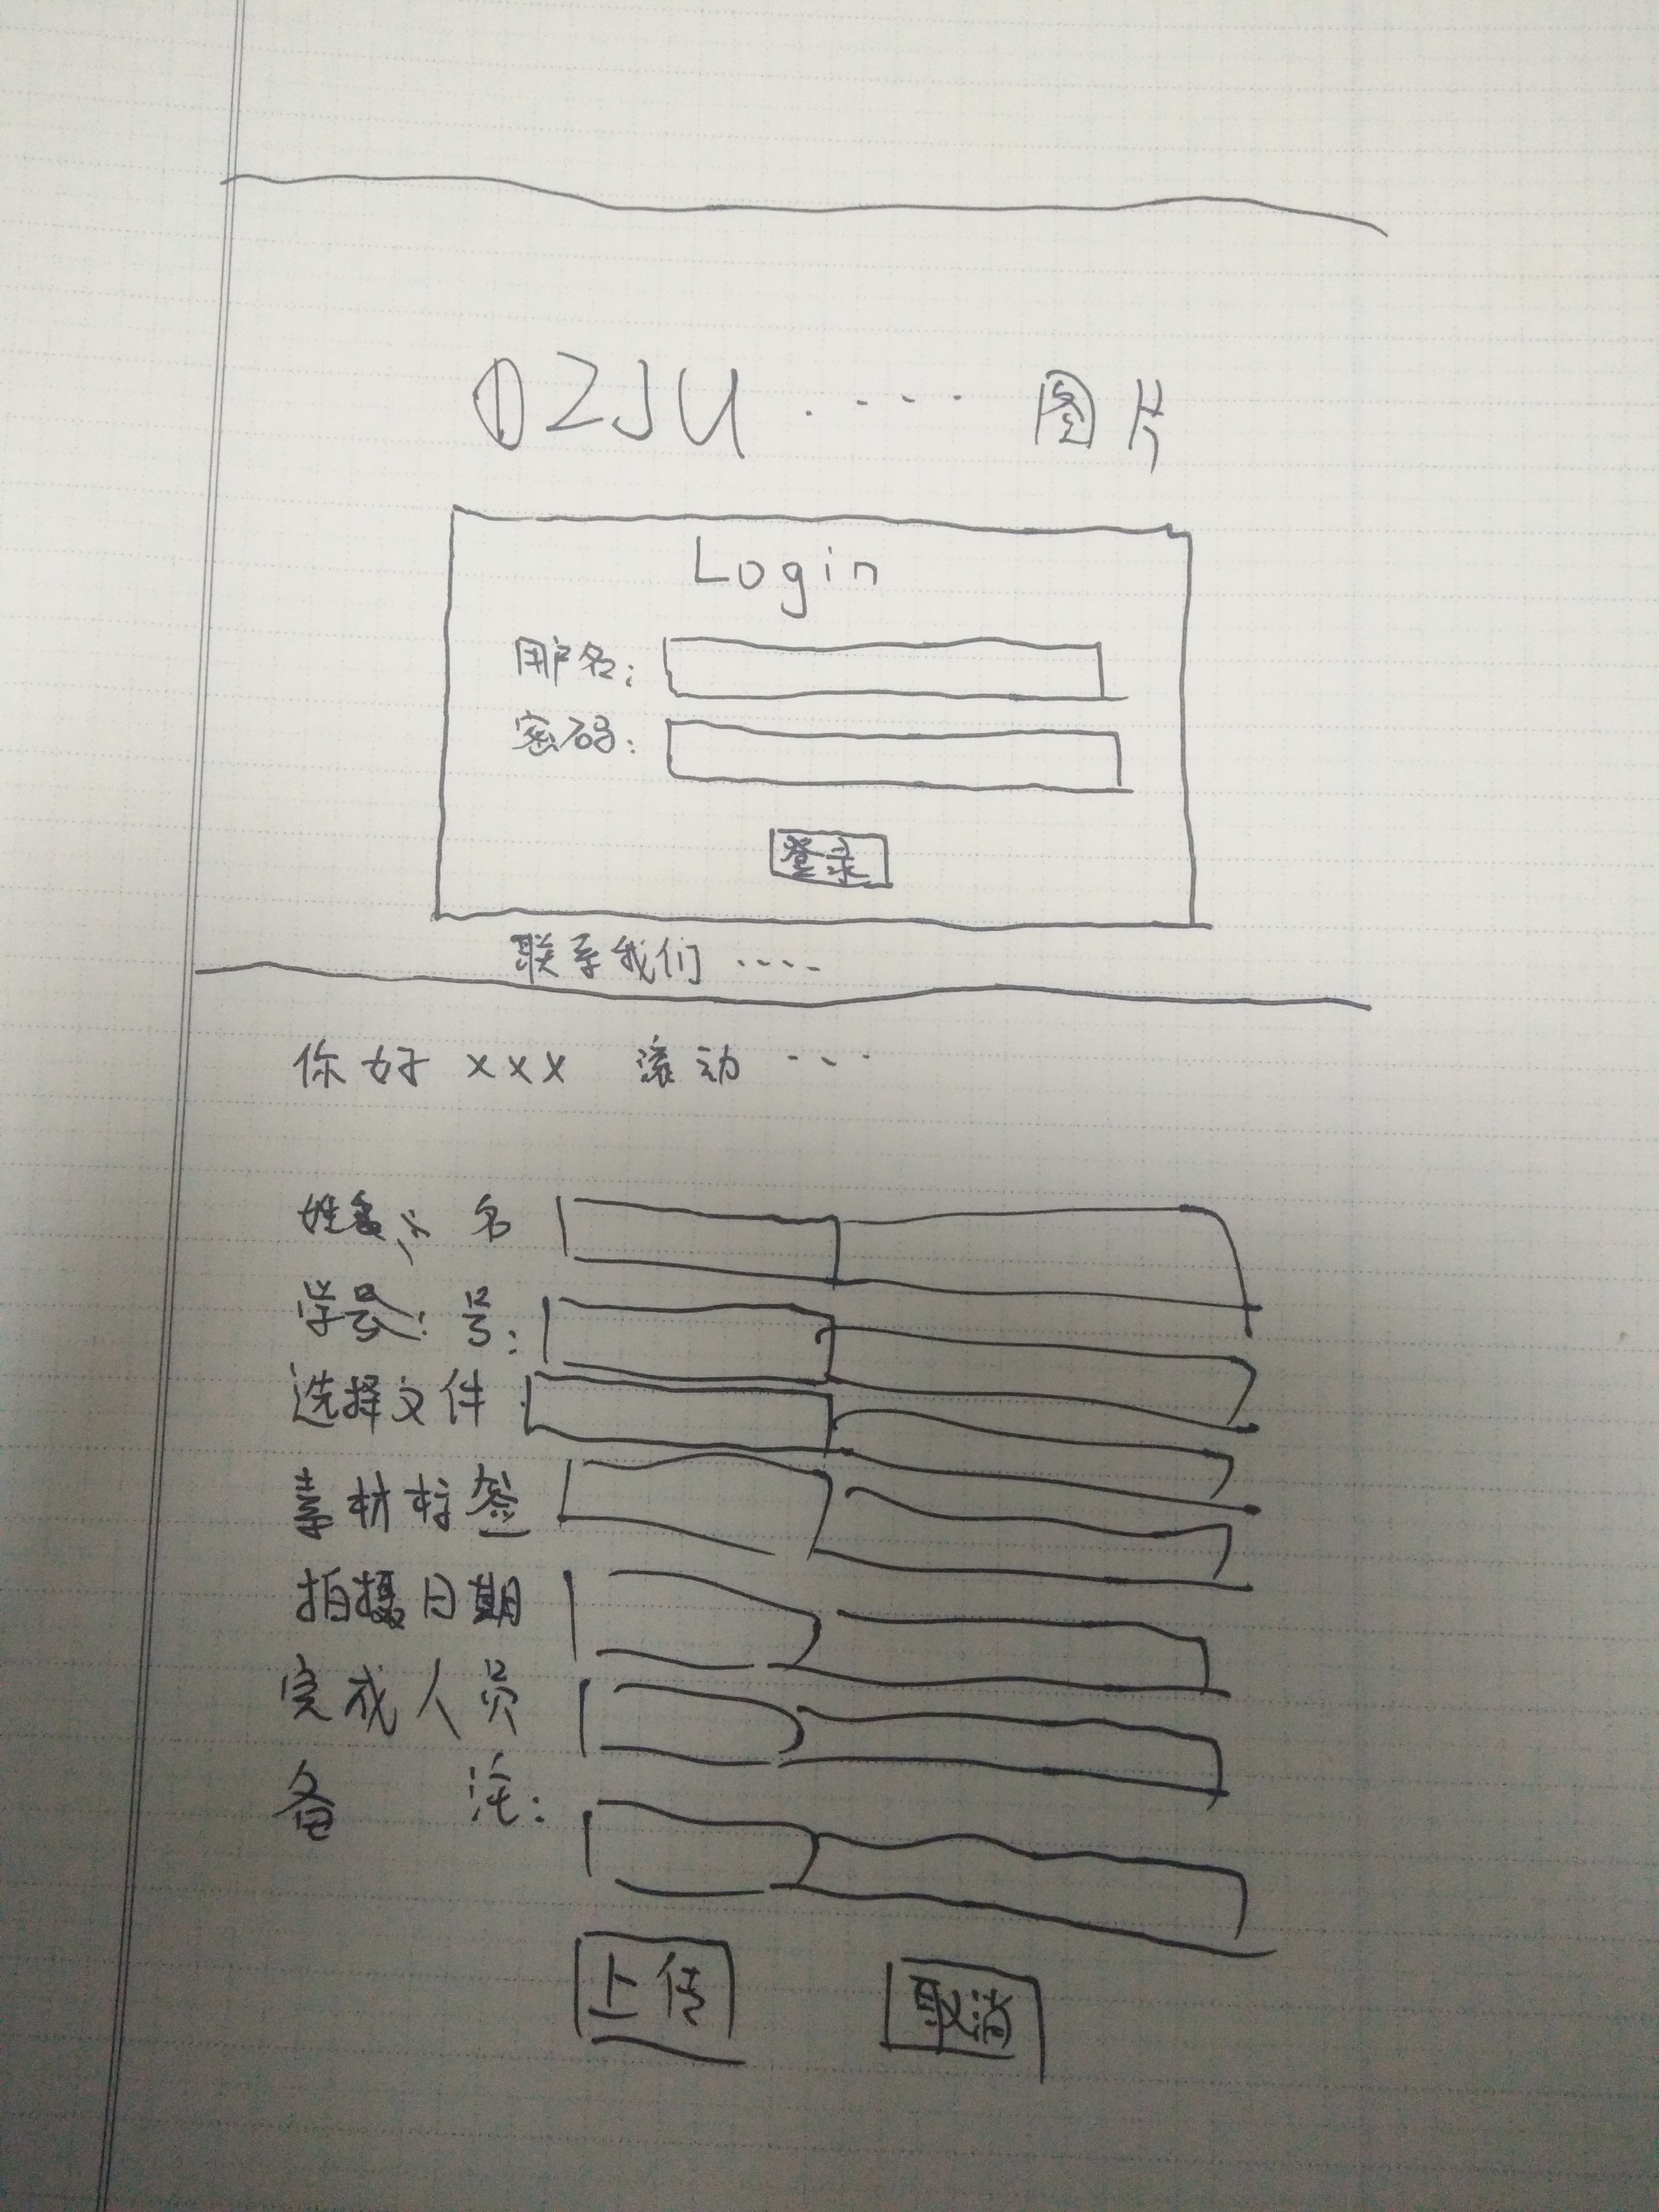 ZJU ···· 图片
Login
用户名:
密码:
登录
联系我们 ····
你好 xxx 滚动 ···
姓名: 名
学号: 号:
选择文件
素材标签
拍摄日期
完成人员
备 注:
上传 取消